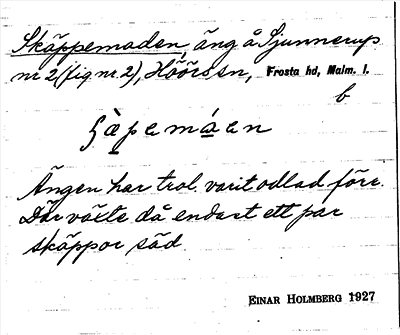 Skäppemaden, äng å Sjunnerup
nr 2 (fig nr 2), Höörs sn, Frosta hd, Malm. l.
b
Ängen har trol. varit odlad förr.
Där växte då endast ett par
skäppor säd.
EINAR HOLMBERG 1927